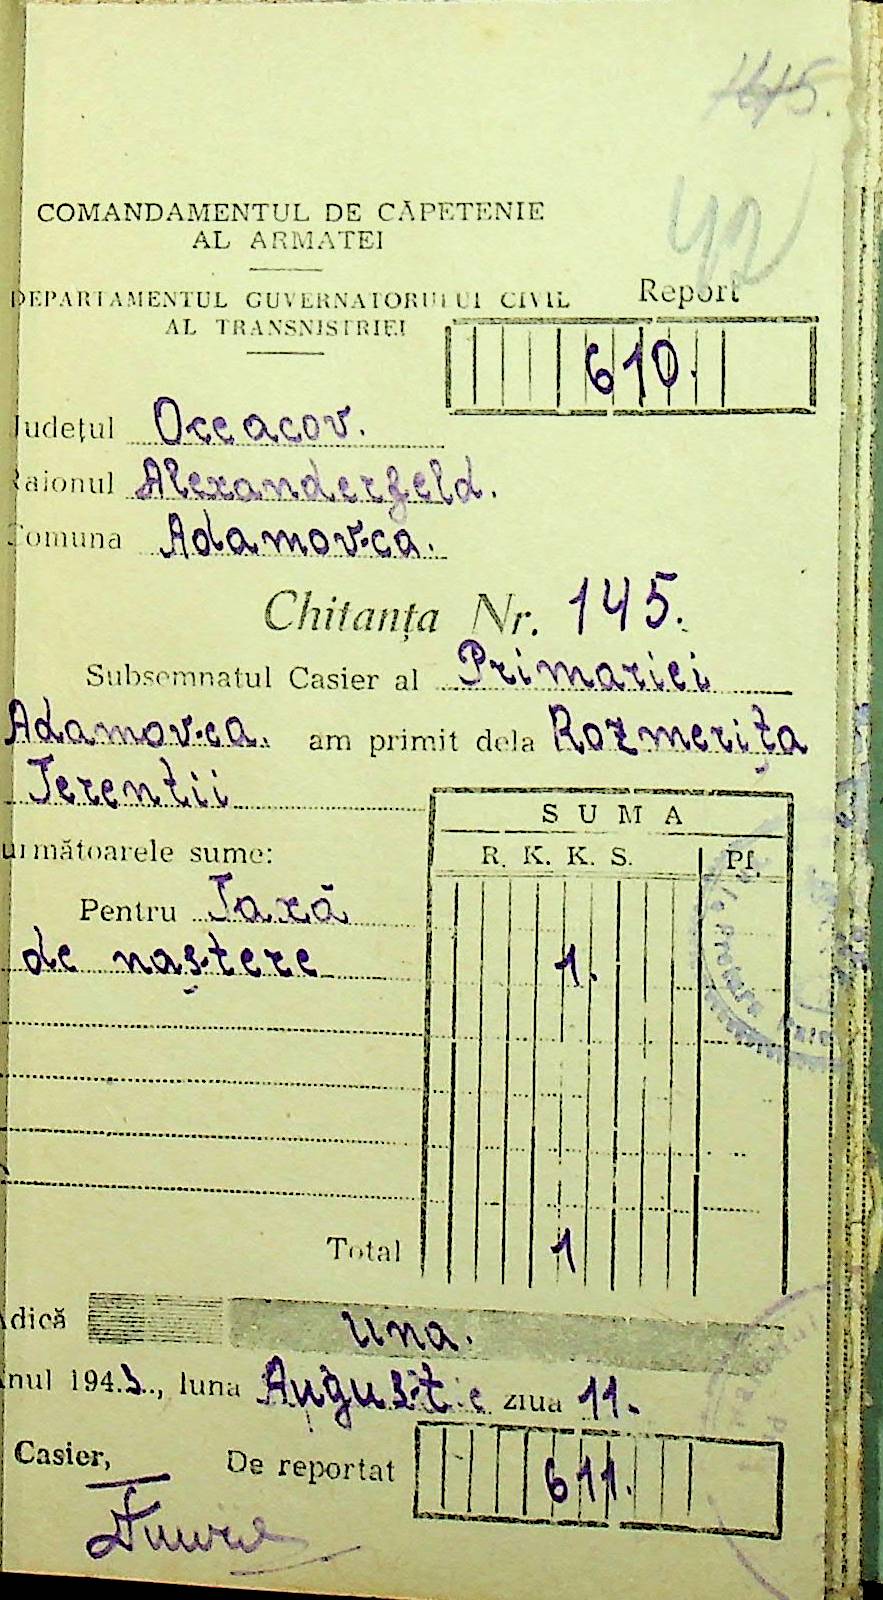 145.
42
COMANDAMENTUL DE CĂPETENIE
AL ARMATEI
DEPARTAMENTUL GUVERNATORULUI CIVIL
AL TRANSNISTRIEI
Report
610.
Județul Oceacov.
Raionul Alexanderfeld.
Comuna Adamovca.
Chitanța Nr. 145.
Subsemnatul Casier al Primariei
Adamovca. am primit dela Rozmerița
Terentii
următoarele sume:
SUMA
R. K. K. S. Pf.
Pentru Taxă
de naștere 1.
Total 1
Adică una.
Anul 1943., luna August ziua 11.
Casier, De reportat 611.